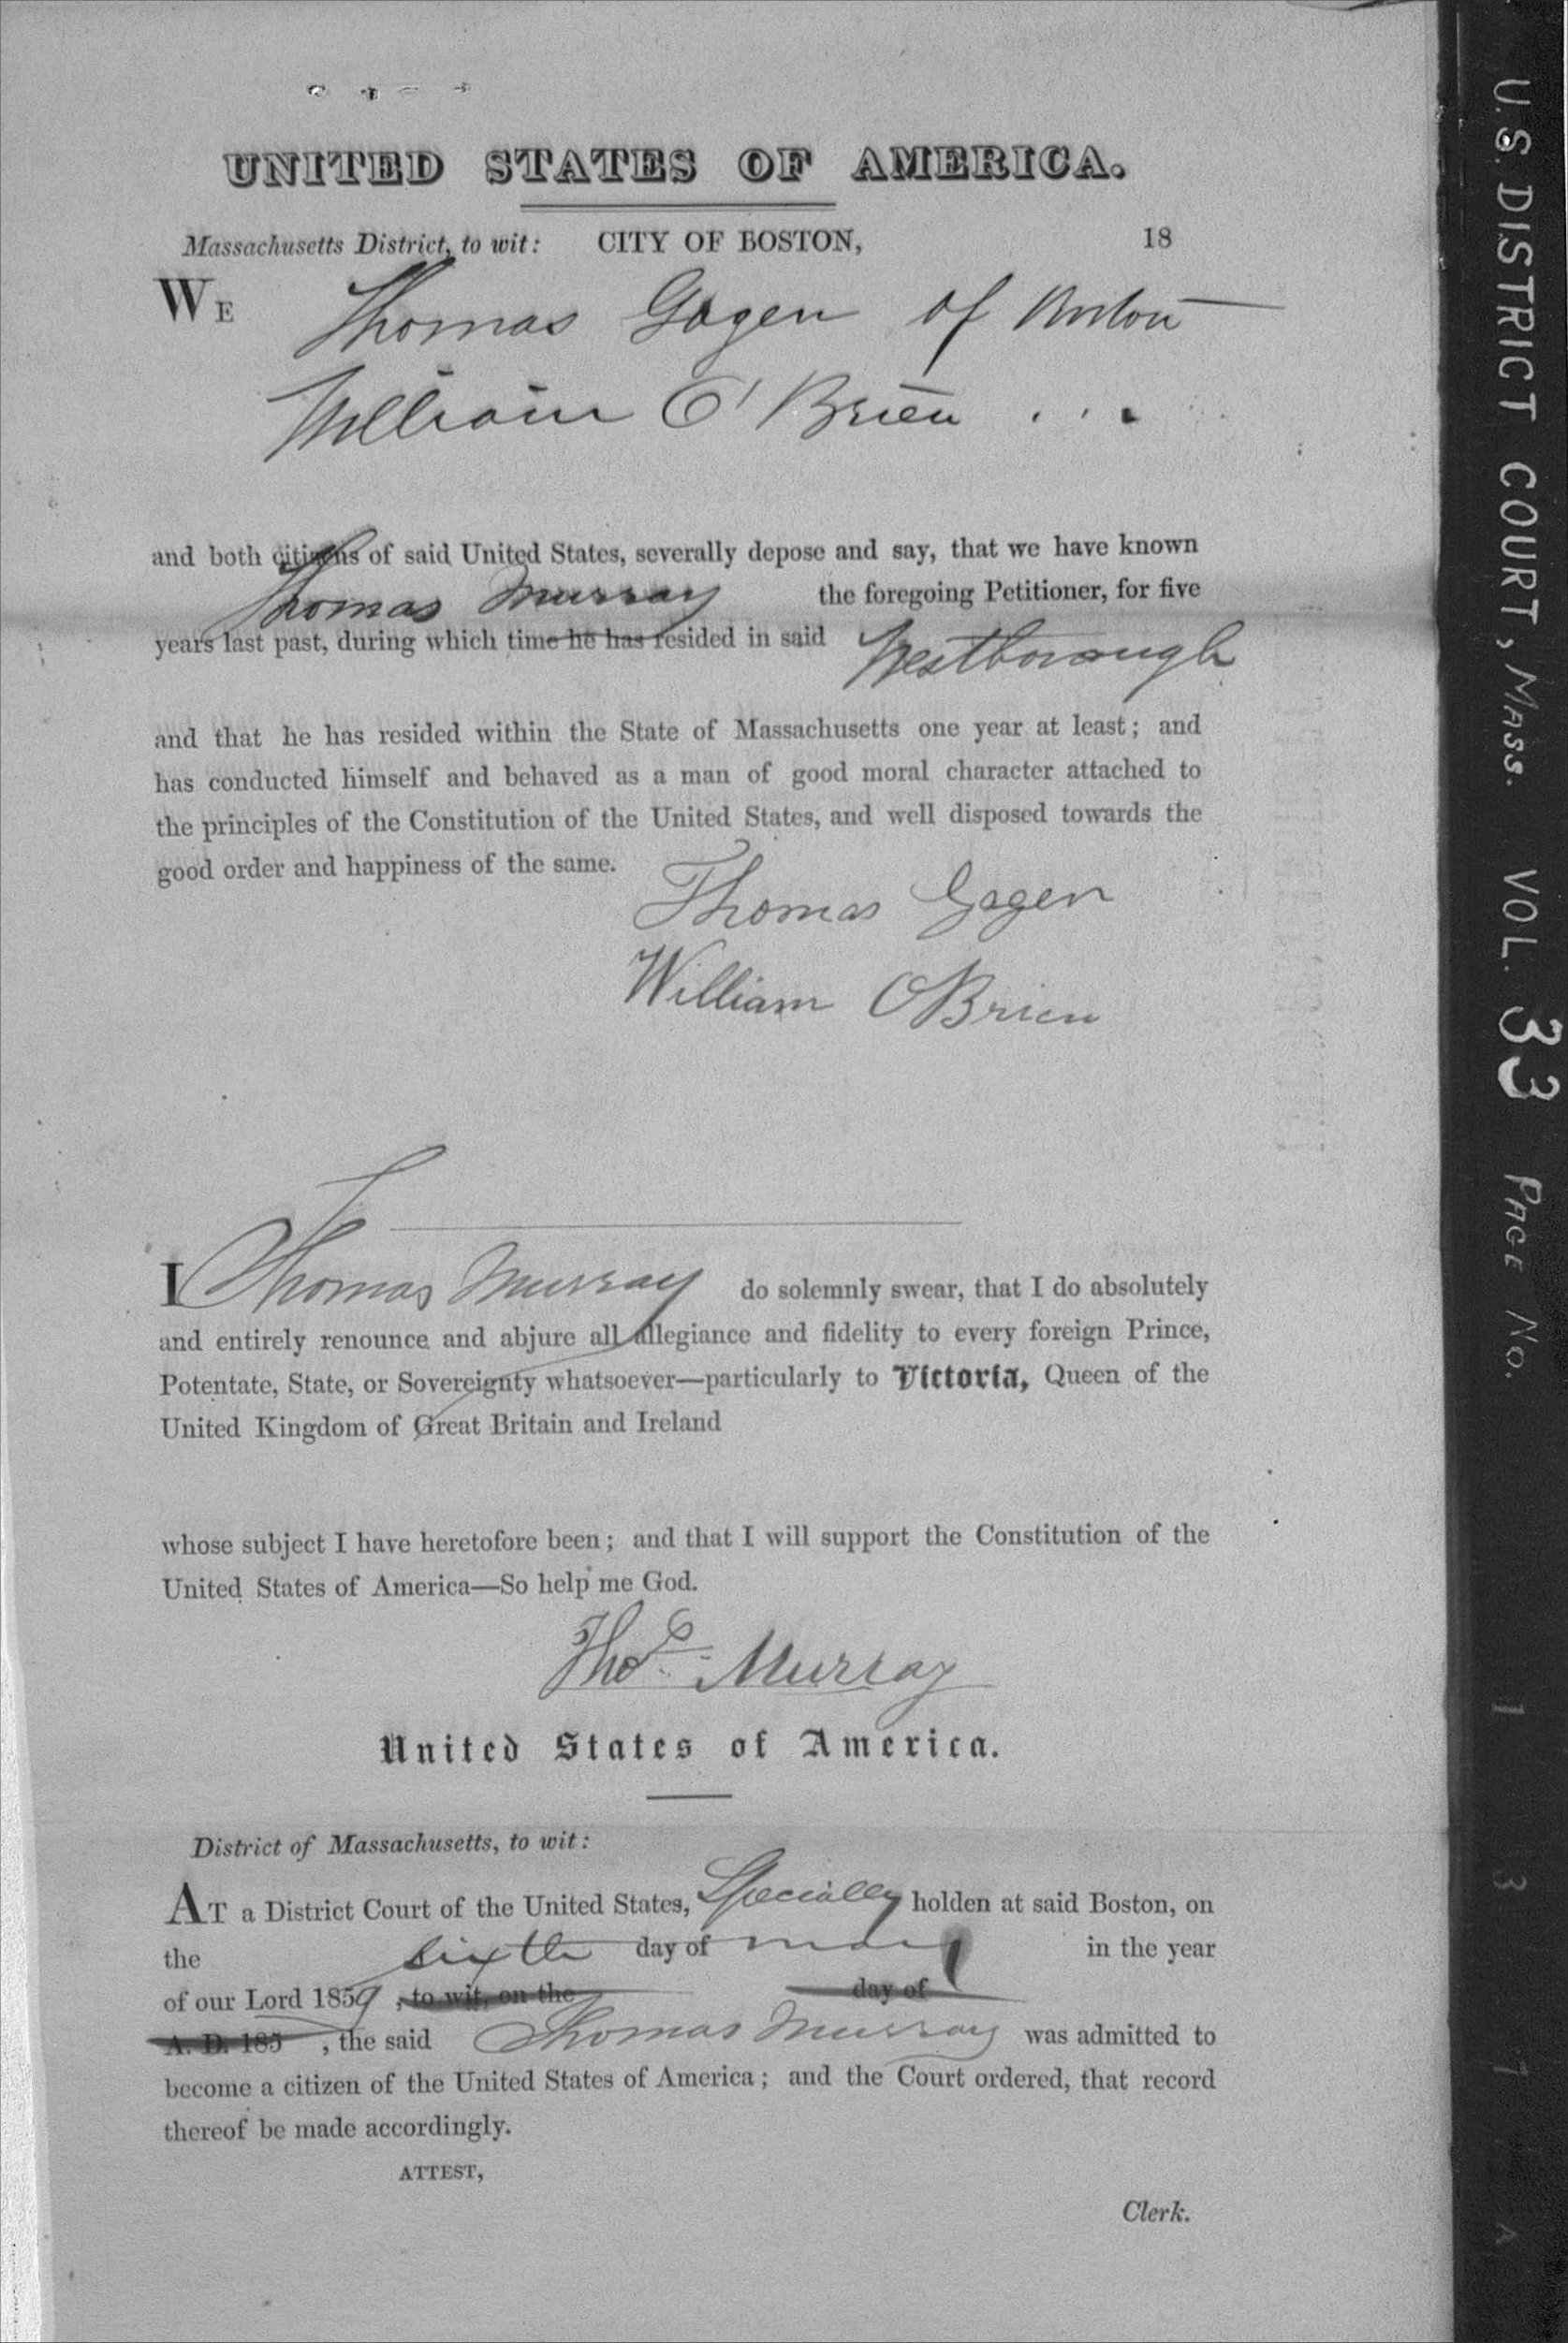 UNITED STATES OF AMERICA.
Massachusetts District, to wit: CITY OF BOSTON, 18
WE Thomas Gagen of Boston
William O'Brien . . .
and both citizens of said United States, severally depose and say, that we have known
Thomas Murray the foregoing Petitioner, for five
years last past, during which time he has resided in said Westborough
and that he has resided within the State of Massachusetts one year at least; and
has conducted himself and behaved as a man of good moral character attached to
the principles of the Constitution of the United States, and well disposed towards the
good order and happiness of the same.
Thomas Gagen
William O'Brien
I Thomas Murray do solemnly swear, that I do absolutely
and entirely renounce and abjure all allegiance and fidelity to every foreign Prince,
Potentate, State, or Sovereignty whatsoever—particularly to Victoria, Queen of the
United Kingdom of Great Britain and Ireland
whose subject I have heretofore been; and that I will support the Constitution of the
United States of America—So help me God.
Thos. Murray
United States of America.
District of Massachusetts, to wit:
AT a District Court of the United States, Specially holden at said Boston, on
the sixth day of May in the year
of our Lord 1859, to wit, on the day of
A. D. 185 , the said Thomas Murray was admitted to
become a citizen of the United States of America; and the Court ordered, that record
thereof be made accordingly.
ATTEST,
Clerk.
U.S. DISTRICT COURT, MASS. VOL. 33 PAGE NO.